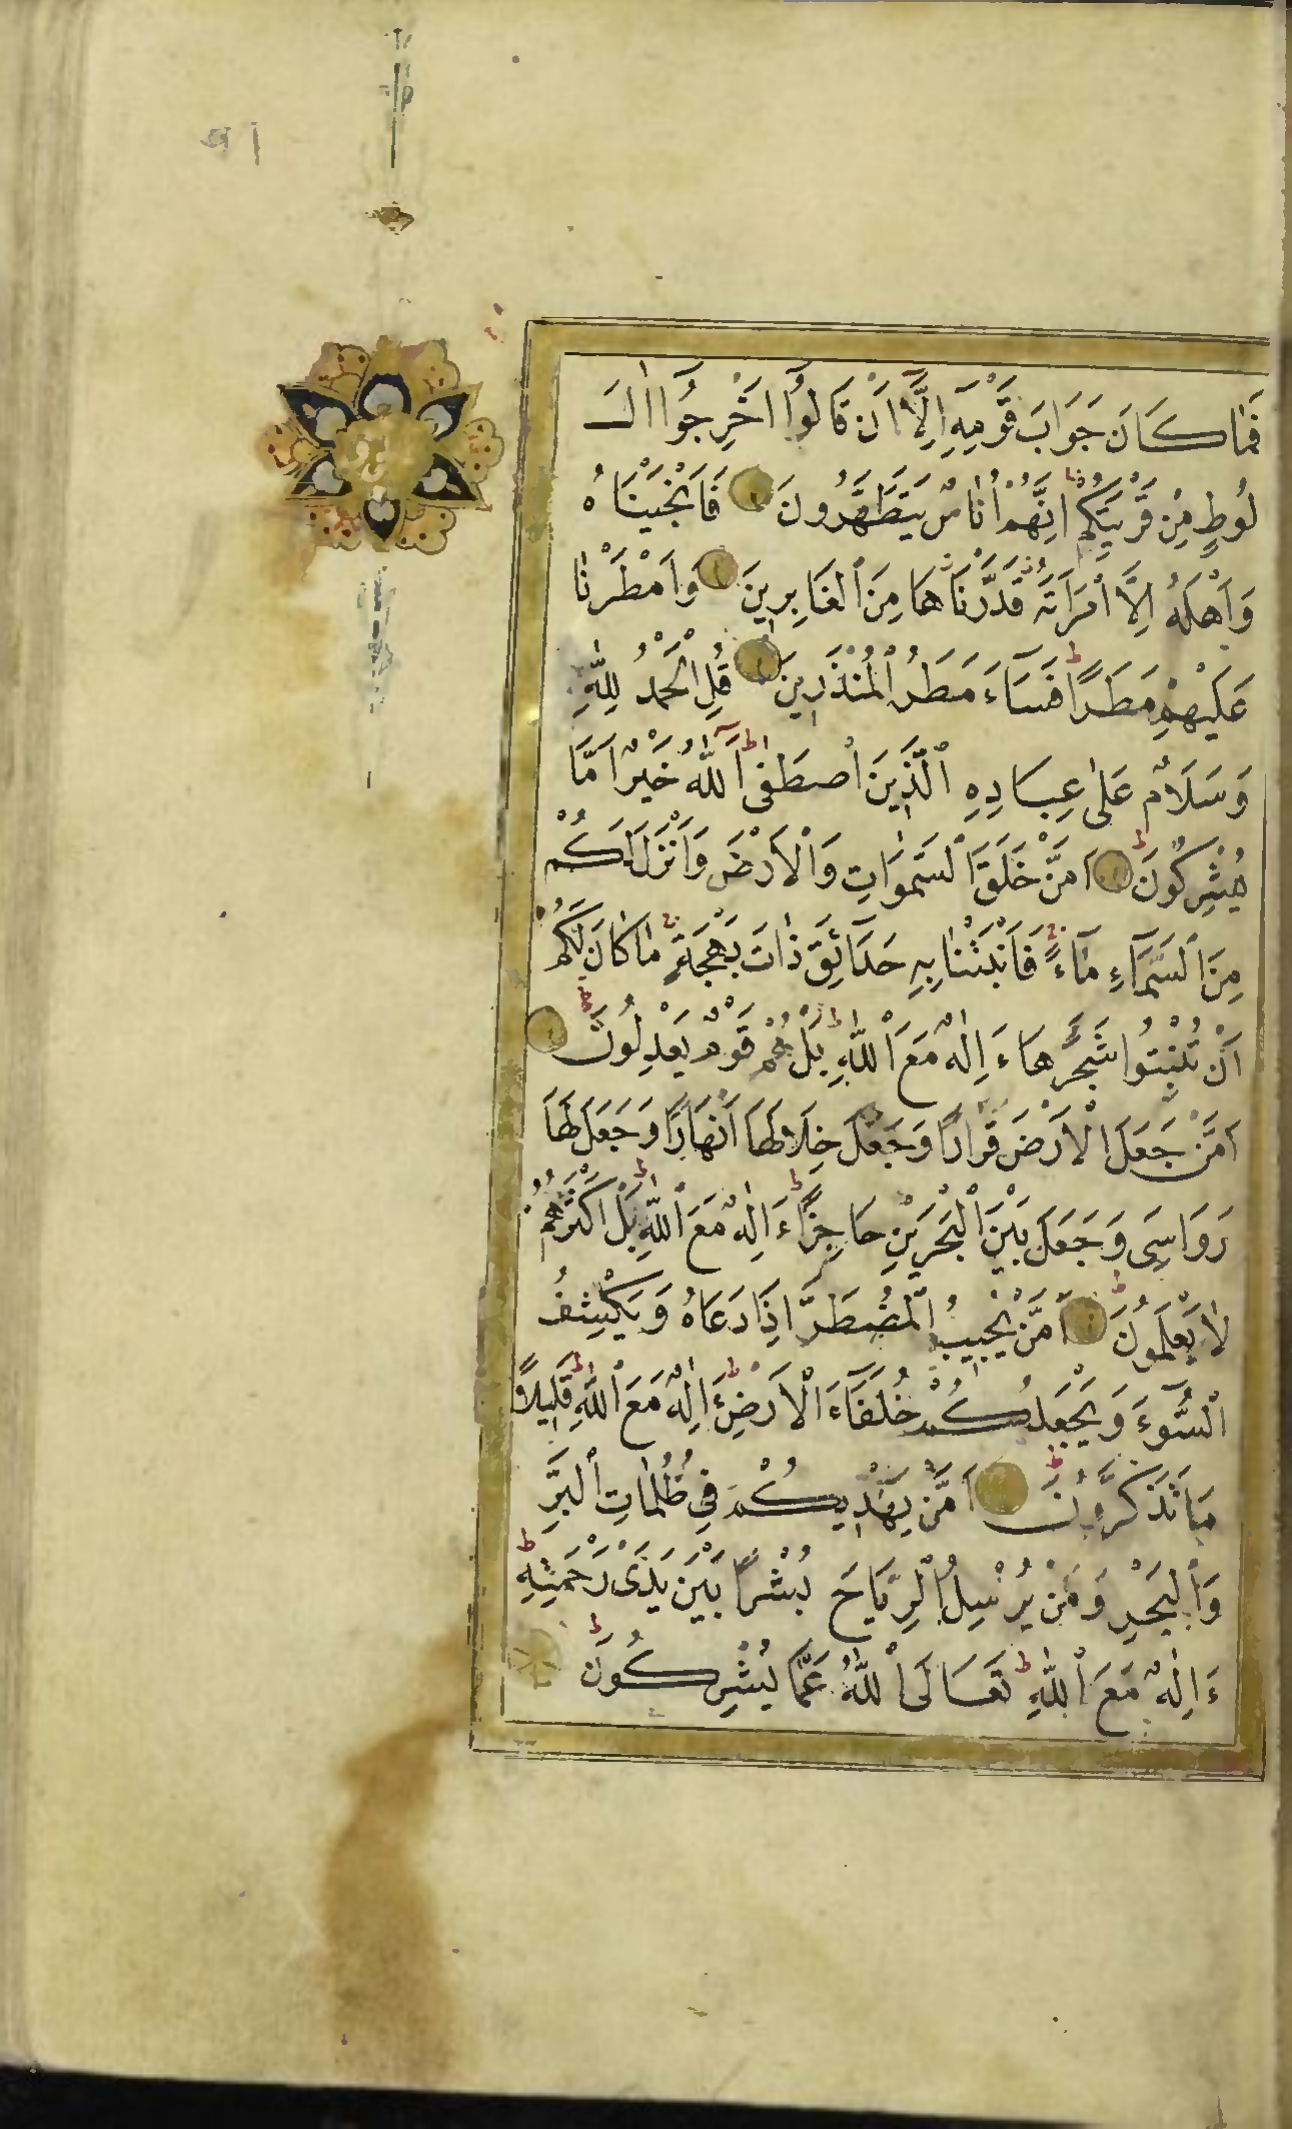 فَمَا كَانَ جَوَابَ قَوْمِهِ اِلَّٓا اَنْ قَالُٓوا اَخْرِجُٓوا اٰلَ
لُوطٍ مِنْ قَرْيَتِكُمْ اِنَّهُمْ اُنَاسٌ يَتَطَهَّرُونَ فَاَنْجَيْنَاهُ
وَاَهْلَهُٓ اِلَّا امْرَاَتَهُ قَدَّرْنَاهَا مِنَ الْغَابِرِينَ وَاَمْطَرْنَا
عَلَيْهِمْ مَطَرًا فَسَٓاءَ مَطَرُ الْمُنْذَرِينَ قُلِ الْحَمْدُ لِلّٰهِ
وَسَلَامٌ عَلٰى عِبَادِهِ الَّذِينَ اصْطَفٰى آللّٰهُ خَيْرٌ اَمَّا
يُشْرِكُونَ اَمَّنْ خَلَقَ السَّمٰوَاتِ وَالْاَرْضَ وَاَنْزَلَ لَكُمْ
مِنَ السَّمَٓاءِ مَٓاءً فَاَنْبَتْنَا بِهِ حَدَٓائِقَ ذَاتَ بَهْجَةٍ مَا كَانَ لَكُمْ
اَنْ تُنْبِتُوا شَجَرَهَا ءَاِلٰهٌ مَعَ اللّٰهِ بَلْ هُمْ قَوْمٌ يَعْدِلُونَ
اَمَّنْ جَعَلَ الْاَرْضَ قَرَارًا وَجَعَلَ خِلَالَهَا اَنْهَارًا وَجَعَلَ لَهَا
رَوَاسِيَ وَجَعَلَ بَيْنَ الْبَحْرَيْنِ حَاجِزًا ءَاِلٰهٌ مَعَ اللّٰهِ بَلْ اَكْثَرُهُمْ
لَا يَعْلَمُونَ اَمَّنْ يُجِيبُ الْمُضْطَرَّ اِذَا دَعَاهُ وَيَكْشِفُ
السُّٓوءَ وَيَجْعَلُكُمْ خُلَفَٓاءَ الْاَرْضِ ءَاِلٰهٌ مَعَ اللّٰهِ قَلِيلًا
مَا تَذَكَّرُونَ اَمَّنْ يَهْدِيكُمْ فِي ظُلُمَاتِ الْبَرِّ
وَالْبَحْرِ وَمَنْ يُرْسِلُ الرِّيَاحَ بُشْرًا بَيْنَ يَدَيْ رَحْمَتِهِ
ءَاِلٰهٌ مَعَ اللّٰهِ تَعَالَى اللّٰهُ عَمَّا يُشْرِكُونَ